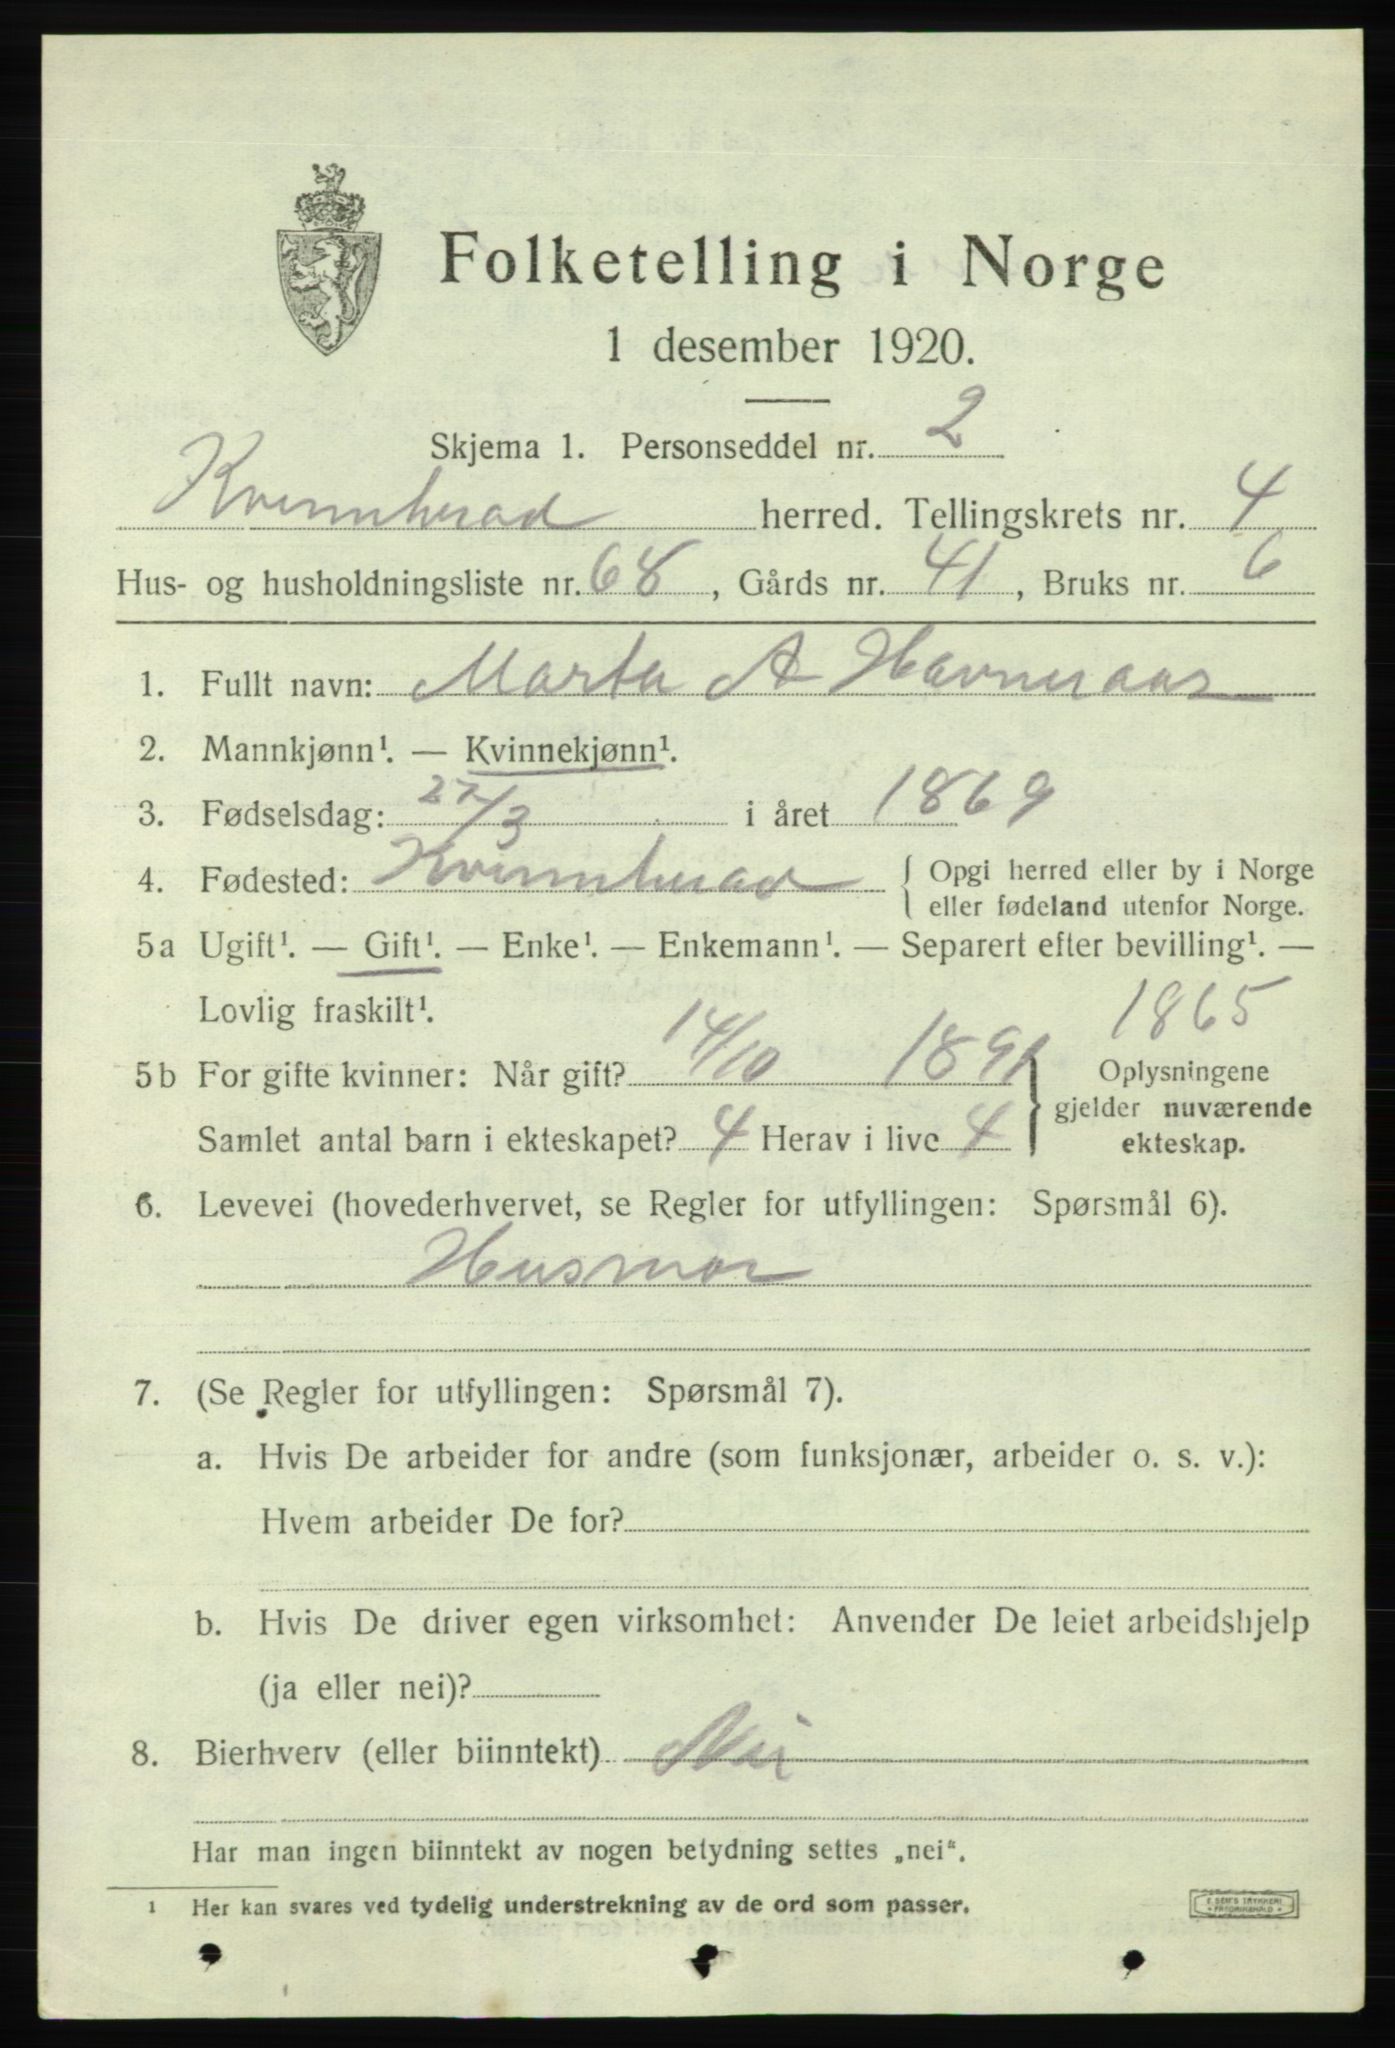 Folketelling i Norge
1 desember 1920.
Skjema 1. Personseddel nr. 2
Kvinnherad herred. Tellingskrets nr. 4
Hus- og husholdningsliste nr. 68, Gårds nr. 41, Bruks nr. 6
1. Fullt navn: Marta A Havneraas
2. Mannkjønn¹. — Kvinnekjønn¹.
3. Fødselsdag: 27/3 i året 1869
4. Fødested: Kvinnherad { Opgi herred eller by i Norge
eller fødeland utenfor Norge.
5a Ugift¹. — Gift¹. — Enke¹. — Enkemann¹. — Separert efter bevilling¹. —
Lovlig fraskilt¹. 1865
5b For gifte kvinner: Når gift? 14/10 1891 } Oplysningene
gjelder nuværende
Samlet antal barn i ekteskapet? 4 Herav i live 4 ekteskap.
6. Levevei (hovederhvervet, se Regler for utfyllingen: Spørsmål 6).
Husmor
7. (Se Regler for utfyllingen: Spørsmål 7).
a. Hvis De arbeider for andre (som funksjonær, arbeider o. s. v.):
Hvem arbeider De for?
b. Hvis De driver egen virksomhet: Anvender De leiet arbeidshjelp
(ja eller nei)?
8. Bierhverv (eller biinntekt) Nei
Har man ingen biinntekt av nogen betydning settes „nei“.
1 Her kan svares ved tydelig understrekning av de ord som passer.
E. SEM'S TRYKKERI
FREDRIKSHALD